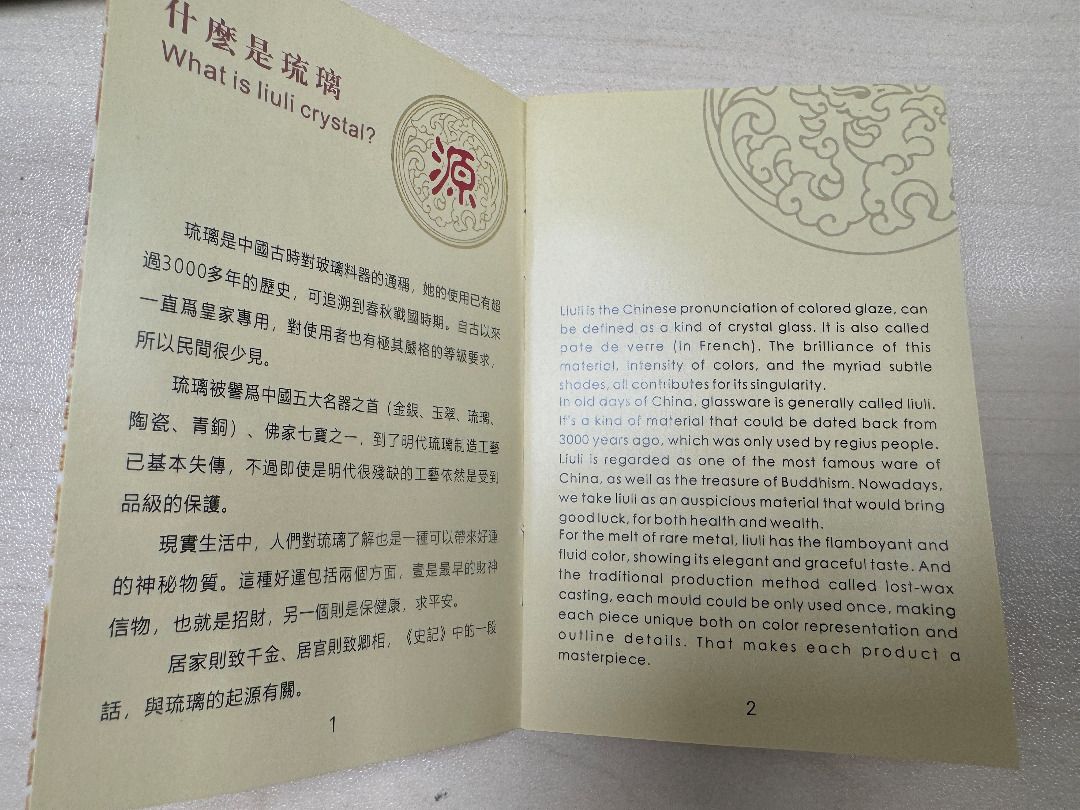 什麽是琉璃
What is liuli crystal?
源
琉璃是中國古時對玻璃料器的通稱，她的使用已有超
過3000多年的歷史，可追溯到春秋戰國時期。自古以來
一直爲皇家專用，對使用者也有極其嚴格的等級要求，
所以民間很少見。
琉璃被譽爲中國五大名器之首（金銀、玉翠、琉璃、
陶瓷、青銅）、佛家七寶之一，到了明代琉璃制造工藝
已基本失傳，不過即使是明代很殘缺的工藝依然是受到
品級的保護。
現實生活中，人們對琉璃了解也是一種可以帶來好運
的神秘物質。這種好運包括兩個方面，壹是最早的財神
信物，也就是招財，另一個則是保健康，求平安。
居家則致千金、居官則致卿相，《史記》中的一段
話，與琉璃的起源有關。
1
Liuli is the Chinese pronunciation of colored glaze, can
be defined as a kind of crystal glass. It is also called
pate de verre (in French). The brilliance of this
material, intensity of colors, and the myriad subtle
shades, all contributes for its singularity.
In old days of China, glassware is generally called liuli.
It's a kind of material that could be dated back from
3000 years ago, which was only used by regius people.
Liuli is regarded as one of the most famous ware of
China, as well as the treasure of Buddhism. Nowadays,
we take liuli as an auspicious material that would bring
good luck, for both health and wealth.
For the melt of rare metal, liuli has the flamboyant and
fluid color, showing its elegant and graceful taste. And
the traditional production method called lost-wax
casting, each mould could be only used once, making
each piece unique both on color representation and
outline details. That makes each product a
masterpiece.
2